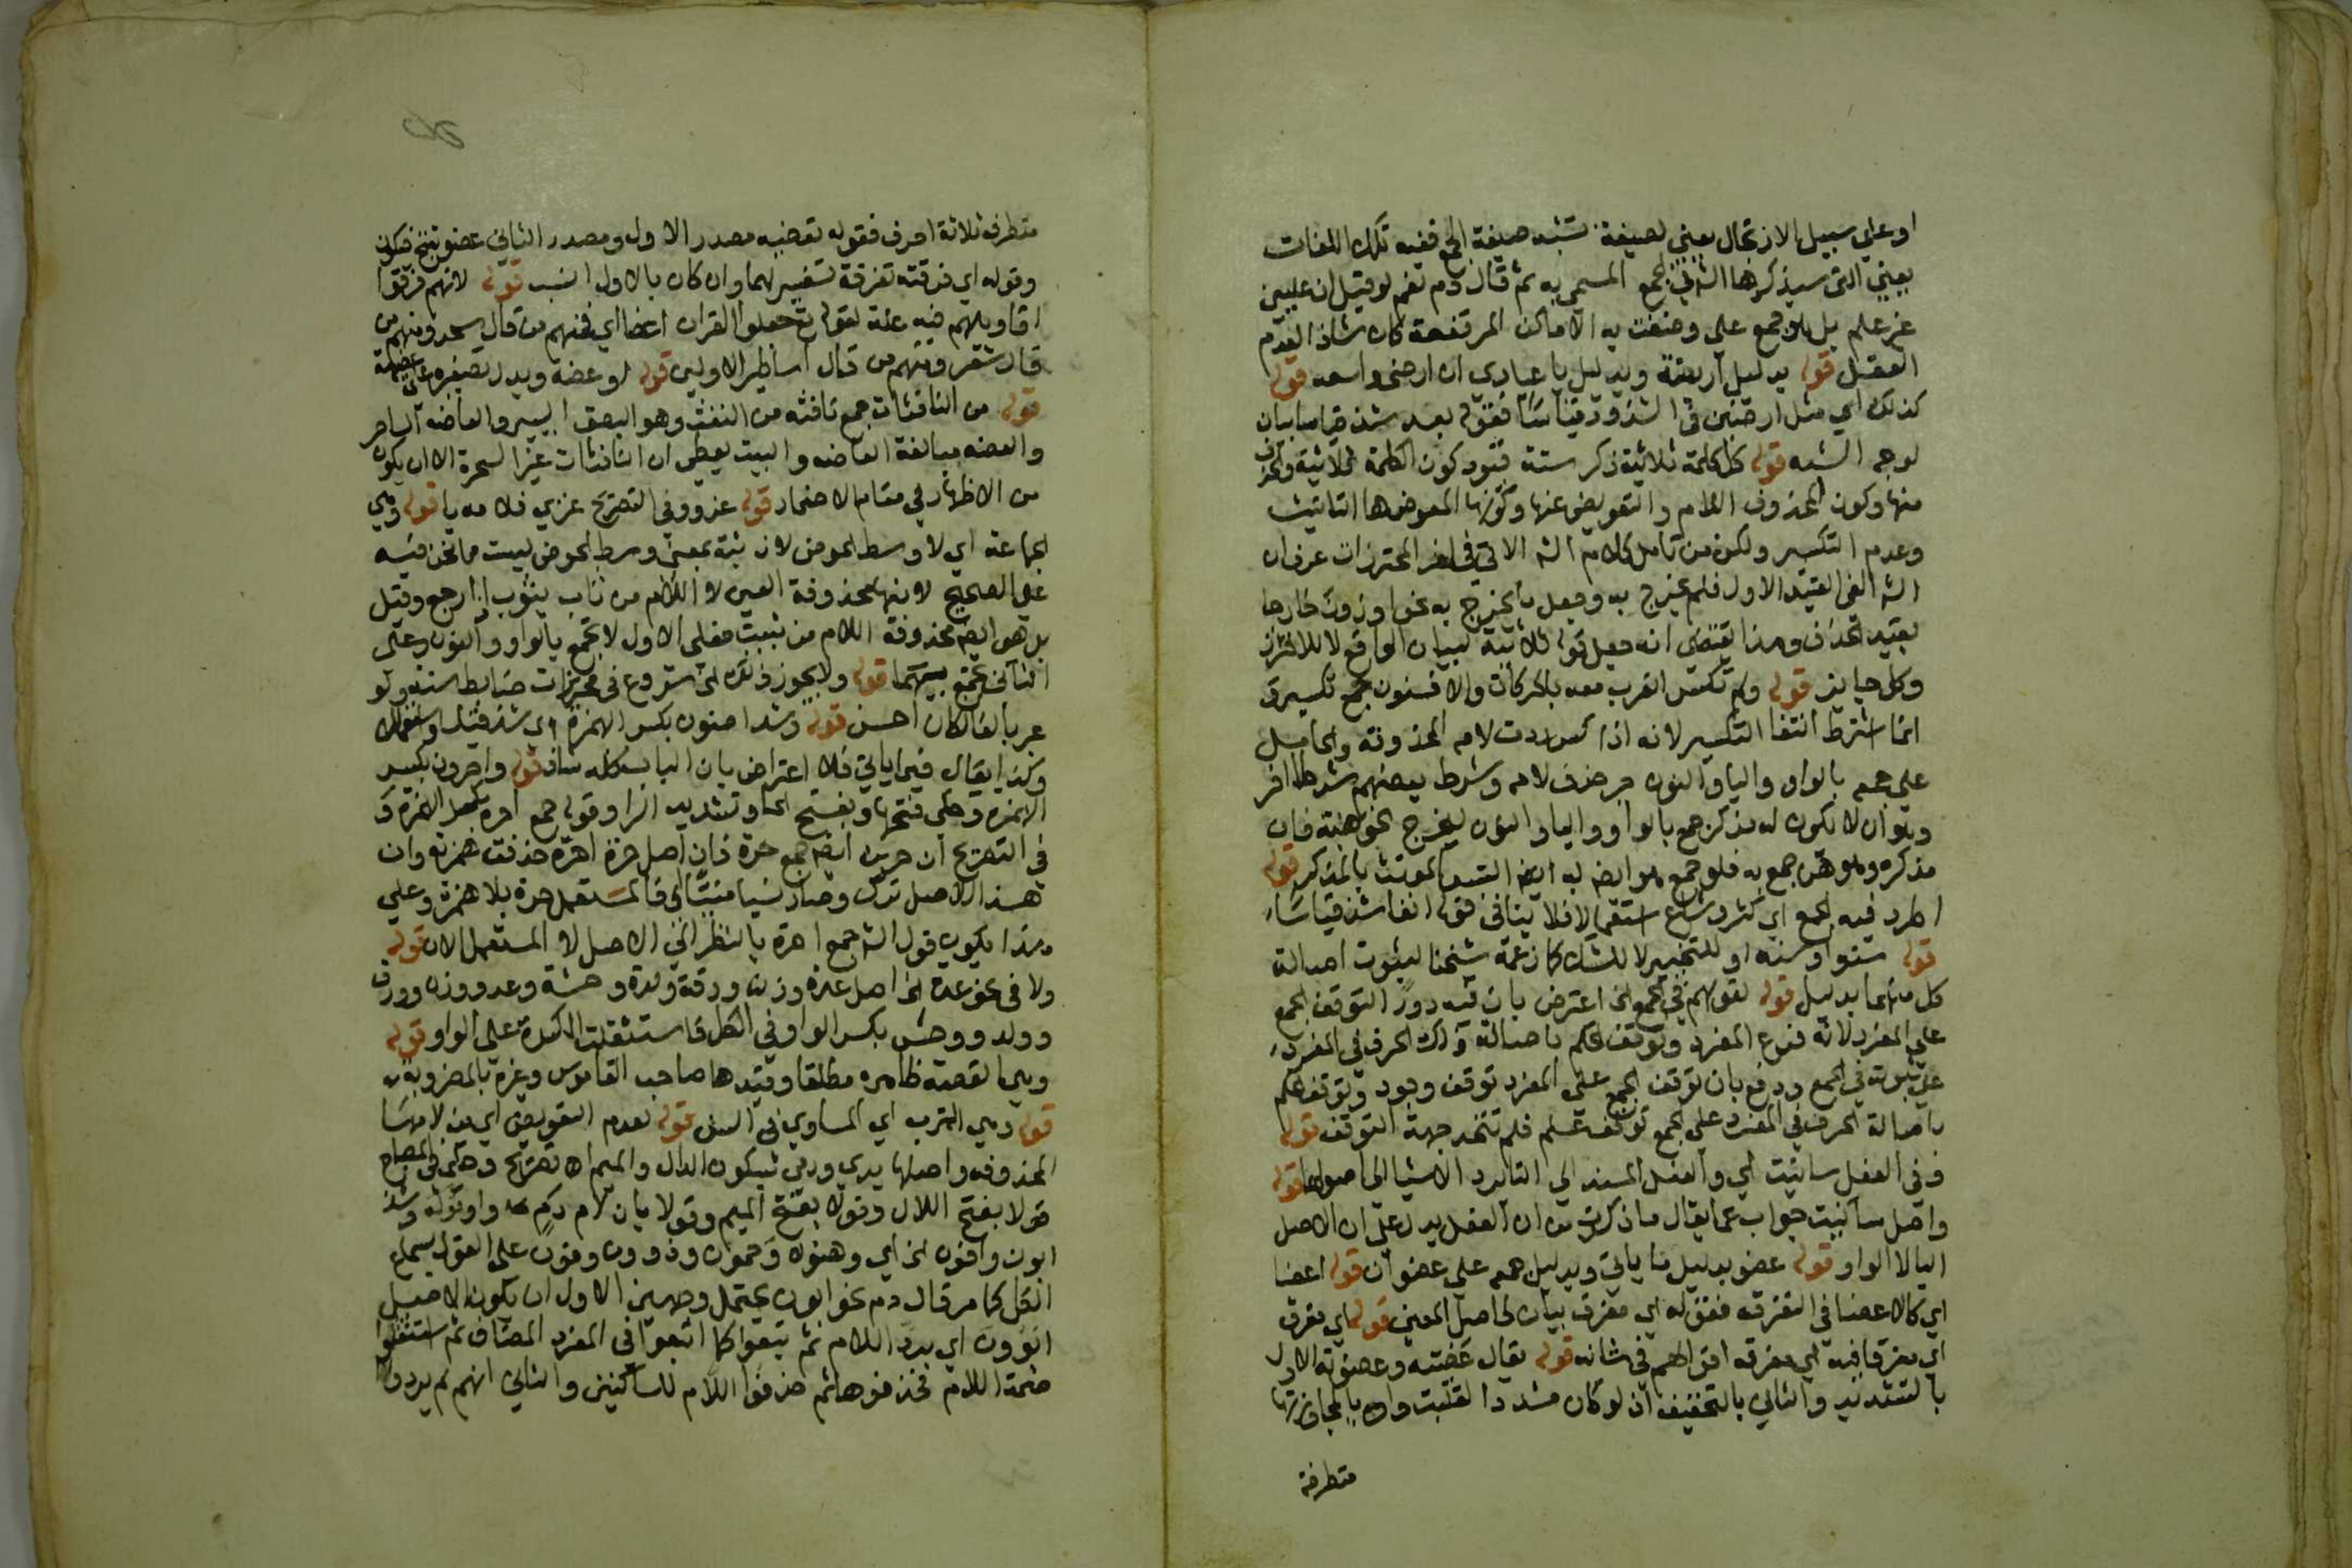 او على سبيل الارتحال يعني لصيغة تشبه صيغة الجمع ففيه تلك اللغات
يعني التى سيذكرها الش في الجمع المسمى به ثم قال دم نعم لو قيل ان عليين
غير علم بل هو جمع على وصفت به الاماكن المرتفعة كان شاذا لعدم
العقل قوله بدليل اريضة وبدليل يا عبادي ان ارضي واسعة قوله
كذلك اي مثل ارضين في الشذوذ قياسا فقوله بعد شذ قياسا بيان
لوجه الشبه قوله كل كلمة ثلاثية ذكر ستة قيود كون الكلمة ثلاثية والحذف
منها وكون المحذوف اللام والتعويض عنها وكونها المعوض ها التانيث
وعدم التكسير ولكن من تامل كلام الش الاتي في اخذ المحترزات عرف ان
الش الغى القيد الاول فلم يخرج به وجعل ما يخرج به نحو اوزون خارجا
بقيد الحذف وهذا يقتضي انه جعل قوله ثلاثية لبيان الواقع لا للاحتراز
وكل جايز قوله ولم تكسر اي تعرب معه بالحركات والا فسنون جمع تكسير
انما اشترط انتفا التكسير لانه اذا كسر ردت لامه المحذوفة والحامل
على جمعه بالواو واليا والنون جبر حذف لامه وشرط بعضهم شرطا اخر
وهو ان لا يكون له مذكر جمع بالواو واليا والنون ليخرج نحو هنة فان
مذكره وهو هن جمع به فلو جمع هو ايضا به التبس المونث بالمذكر قوله
اطرد فيه الجمع اي كثر وشاع استعمالا فلا ينافي قوله انفا شذ قياسا
قوله سنو او سنه او للتخيير لا للشك كما زعمه شيخنا لثبوت اصالة
كل منهما بدليل قوله لقولهم في الجمع الخ اعترض بان فيه دور التوقف الجمع
على المفرد لانه فرع المفرد وتوقف الحكم باصالة ذلك الحرف في المفرد
على ثبوته في الجمع ودفع بان توقف الجمع على المفرد توقف وجود وتوقف الحكم
باصالة الحرف في المفرد على الجمع توقف علم فلم تتحد جهة التوقف قوله
وفي الفعل سانيت اي والفعل المسند الى التا يرد الاشيا الى اصولها قوله
واصل سانيت جواب عما يقال ما ذكرت من ان الفعل يدل على ان الاصل
اليا لا الواو قوله عضو بدليل ما ياتي وبدليل جمعه على عضوات قوله اعضا
اي كالاعضا في التفرقه فقوله اي مفرق بيان لحاصل المعنى قوله اي مفرق
اي مفرقا فيه اي مفرقه اقوالهم في شانه قوله يقال عضيته وعضوته الاول
بالتشديد والثاني بالتخفيف اذ لو كان مشددا لقلبت واوه يا لمجاوزتها
متطرفة
متطرفه ثلاثة احرف فقوله تعضيه مصدر الاول ومصدر الثاني عضو بفتح فسكون
وقوله اي فرقته تفرقة تفسير لهما وان كان بالاول انسب قوله لانهم فرقوا
اقاويلهم فيه علة لقوله تع جعلوا القران اعضا اي فمنهم من قال سحر ومنهم من
قال شعر ومنهم من قال اساطير الاولين قوله او عضه ويدل تصغيره على عضيهة
قوله من النافثات جمع نافثه من النفث وهو البصق اليسير والعاضه الساحر
والعضه مبالغة العاضه والبيت يعطي ان النافثات غير السحرة الا ان يكون
من الاظهار في مقام الاضمار قوله عزو وفي التصريح عزي فلامه يا قوله وهي
الجماعة اي لا وسط الحوض لان ثبة بمعنى وسط الحوض ليست مما نحن فيه
على الصحيح لانها محذوفة العين لا اللام من ثاب يثوب اذا رجع وقيل
بل هو ايضا محذوفة اللام من ثبيت فعلى الاول لا تجمع بالواو والنون وعلى
الثاني تجمع بهما قوله ولا يجوز ذلك الخ شروع في محترزات ضابط سنه ولو
عبر بالفا لكان احسن قوله وشذ اضون بكسر الهمزة اي شذ قياسا واستعمالا
وكذا يقال فيما ياتي فلا اعتراض بان الباب كله شاذ قوله واحرون بكسر
الهمزة وحكي فتحها وبفتح الحا وتشديد الرا وقوله جمع احره بكسر الهمزة و
في التصريح ان حرين ايضا جمع حرة فان اصل حرة احرة حذفت همزته وان
هذا الاصل ترك وصار نسيا منسيا فالمستعمل حرة بلا همزة وعلى
هذا يكون قول الش جمع احرة بالنظر الى الاصل لا المستعمل الان قوله
ولا في نحو عدة الخ اصل عدة وزنة ورقة ولدة وحشة وعد ووزن وورق
وولد ووحش بكسر الواو في الكل فاستثقلت الكسرة على الواو قوله
وهي الفضة ظاهره مطلقا وقيدها صاحب القاموس وغيره بالمضروبة
قوله وهي الترب اي المساوي في السن قوله لعدم التعويض اي من لامها
المحذوفه واصلها يدي ودمي بسكون الدال والميم اه تصريح وحكى في المصباح
قولا بفتح الدال وقولا بفتح الميم وقولا بان لام دم واو قوله وشذ
ابون واخون الخ اي وهنون وحمون وذوون وفون على القول بسماع
الكل كما مر قال دم نحو ابون يحتمل وجهين الاول ان يكون الاصل
ابوون اي برد اللام ثم تبعوا كما اتبعوا في المفرد المضاف ثم استثقلوا
ضمة اللام فحذفوها ثم حذفوا اللام للساكنين والثاني انهم لم يردوا